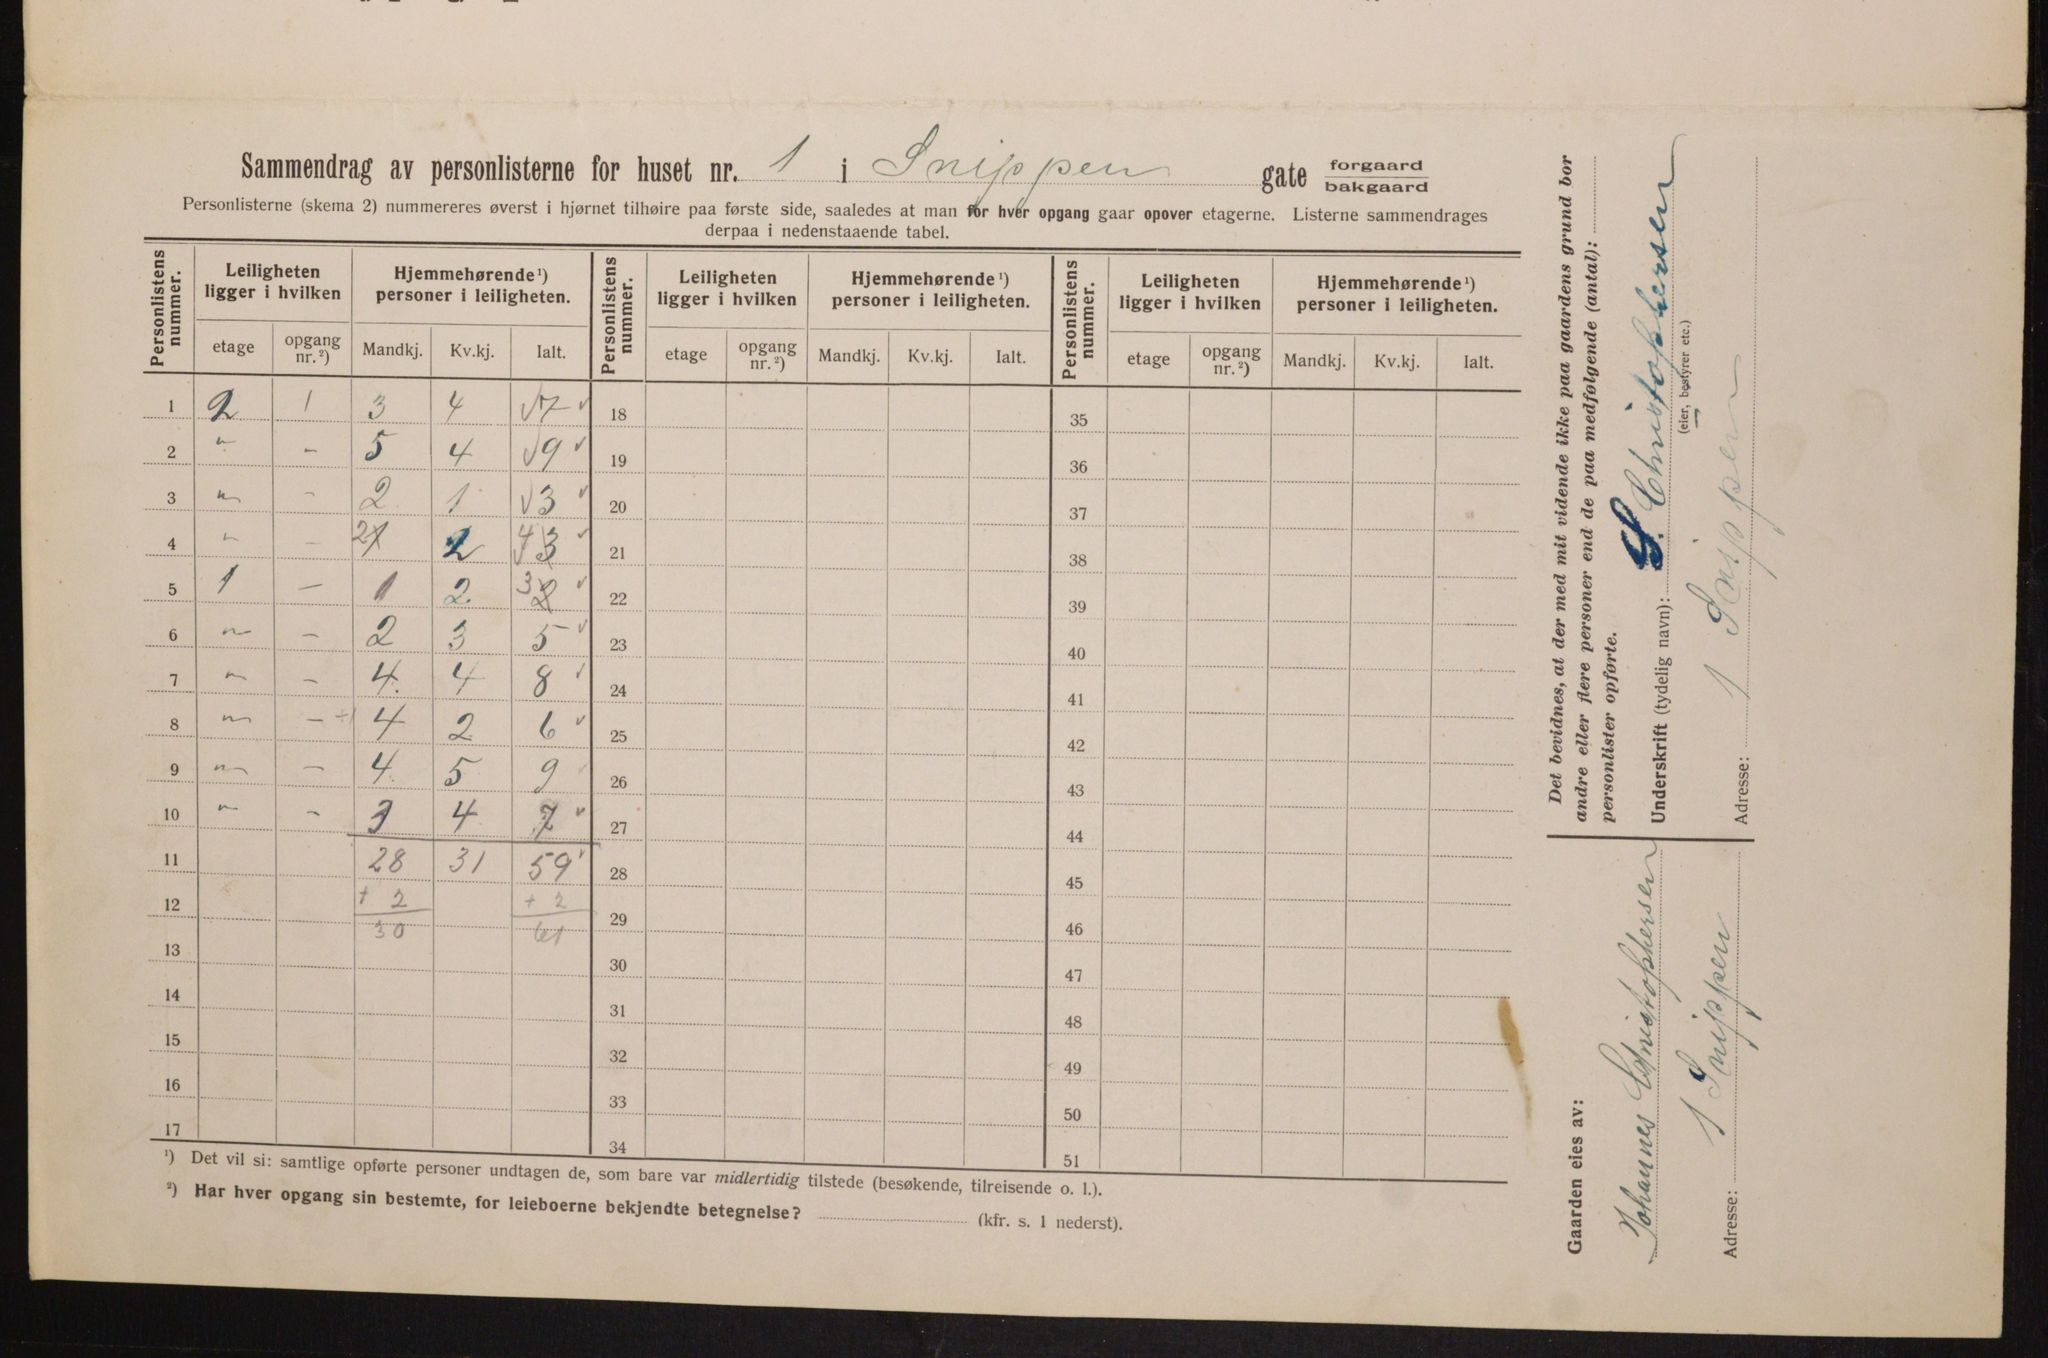 Sammendrag av personlisterne for huset nr. 1 i Snippen gate forgaard
bakgaard
Personlisterne (skema 2) nummereres øverst i hjørnet tilhøire paa første side, saaledes at man for hver opgang gaar opover etagerne. Listerne sammendrages
derpaa i nedenstaaende tabel.
Personlistens nummer. Leiligheten ligger i hvilken Hjemmehørende ¹) personer i leiligheten. Personlistens nummer. Leiligheten ligger i hvilken Hjemmehørende ¹) personer i leiligheten. Personlistens nummer. Leiligheten ligger i hvilken Hjemmehørende ¹) personer i leiligheten.
etage opgang nr. ²) Mandkj. Kv.kj. Ialt. etage opgang nr. ²) Mandkj. Kv.kj. Ialt. etage opgang nr. ²) Mandkj. Kv.kj. Ialt.
1 2 1 3 4 √7 √ 18 35
2 " - 5 4 √9 √ 19 36
3 " - 2 1 √3 √ 20 37
4 " - 2 1 2 4 √3 √ 21 38
5 1 - 1 2 3 2 √ 22 39
6 " - 2 3 5 √ 23 40
7 " - 4. 4 8 √ 24 41
8 " - +1 4 2 6 √ 25 42
9 " - 4. 5 9 √ 26 43
10 " - 3 4 7 √ 27 44
11 28 31 59 √ 28 45
12 + 2 + 2 29 46
30 61
13 30 47
14 31 48
15 32 49
16 33 50
17 34 51
¹) Det vil si: samtlige opførte personer undtagen de, som bare var midlertidig tilstede (besøkende, tilreisende o. l.).
²) Har hver opgang sin bestemte, for leieboerne bekjendte betegnelse? (kfr. s. 1 nederst).
Det bevidnes, at der med mit vidende ikke paa gaardens grund bor
andre eller flere personer end de paa medfølgende (antal):
personlister opførte.
Underskrift (tydelig navn): S. Christophersen
(eier, bestyrer etc.)
Adresse: 1 Snippen
Gaarden eies av:
Johannes Christophersen
Adresse: 1 Snippen